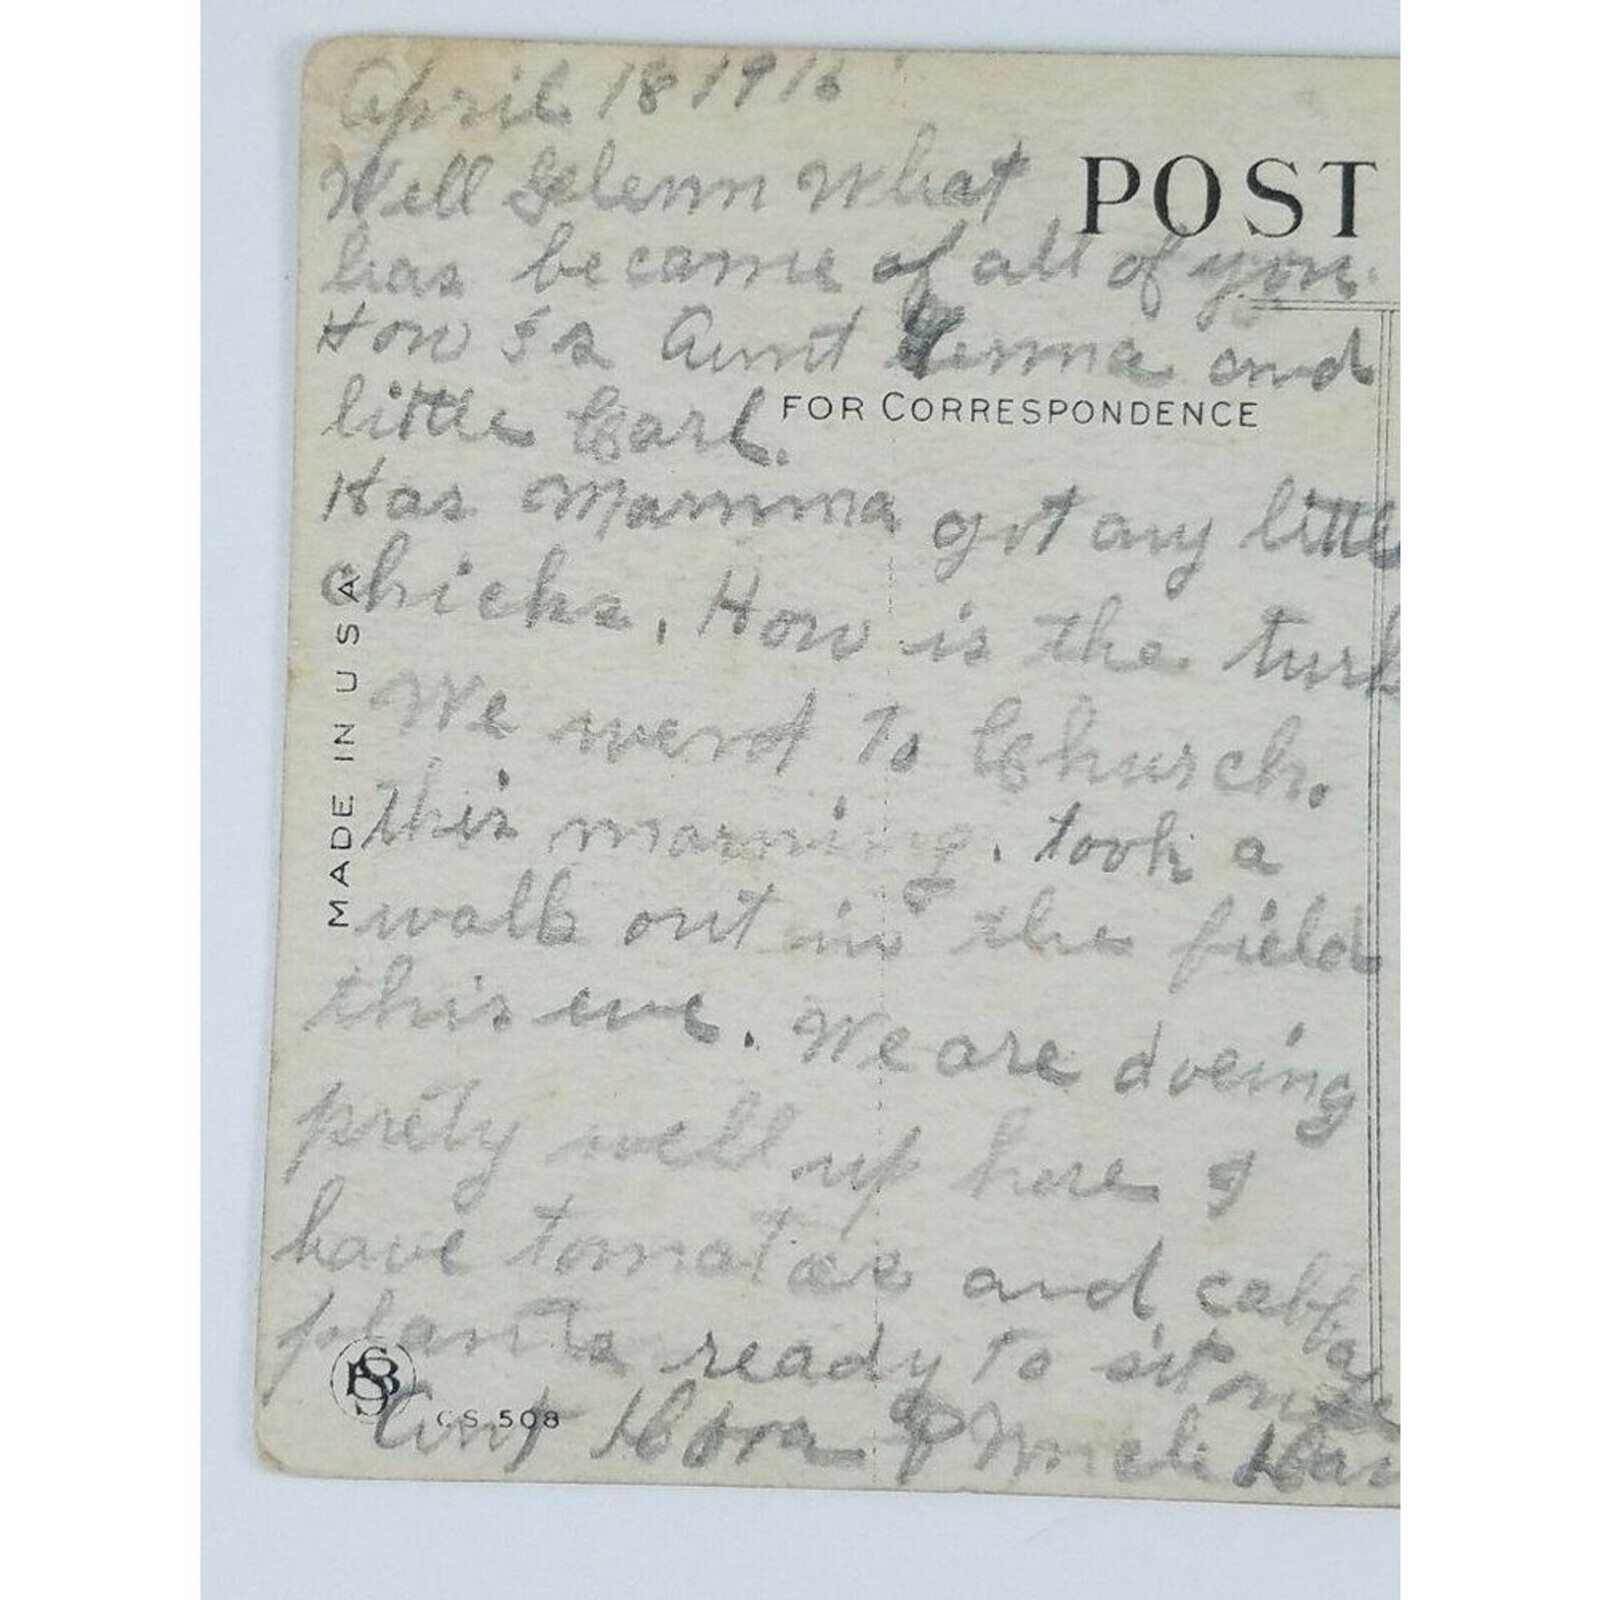 April 18 1916
Well Glenn what
POST
has became of all of you.
How is Aunt and
little Carl.
FOR CORRESPONDENCE
Has Mamma got any little
chicks. How is the turk
We went to Church.
this morning. took a
walk out in the field
this eve. We are doeing
prety well up here I
have tomatoes and cabbage
plants ready to sit out
Aunt & Uncle Har
MADE IN USA
CS 508